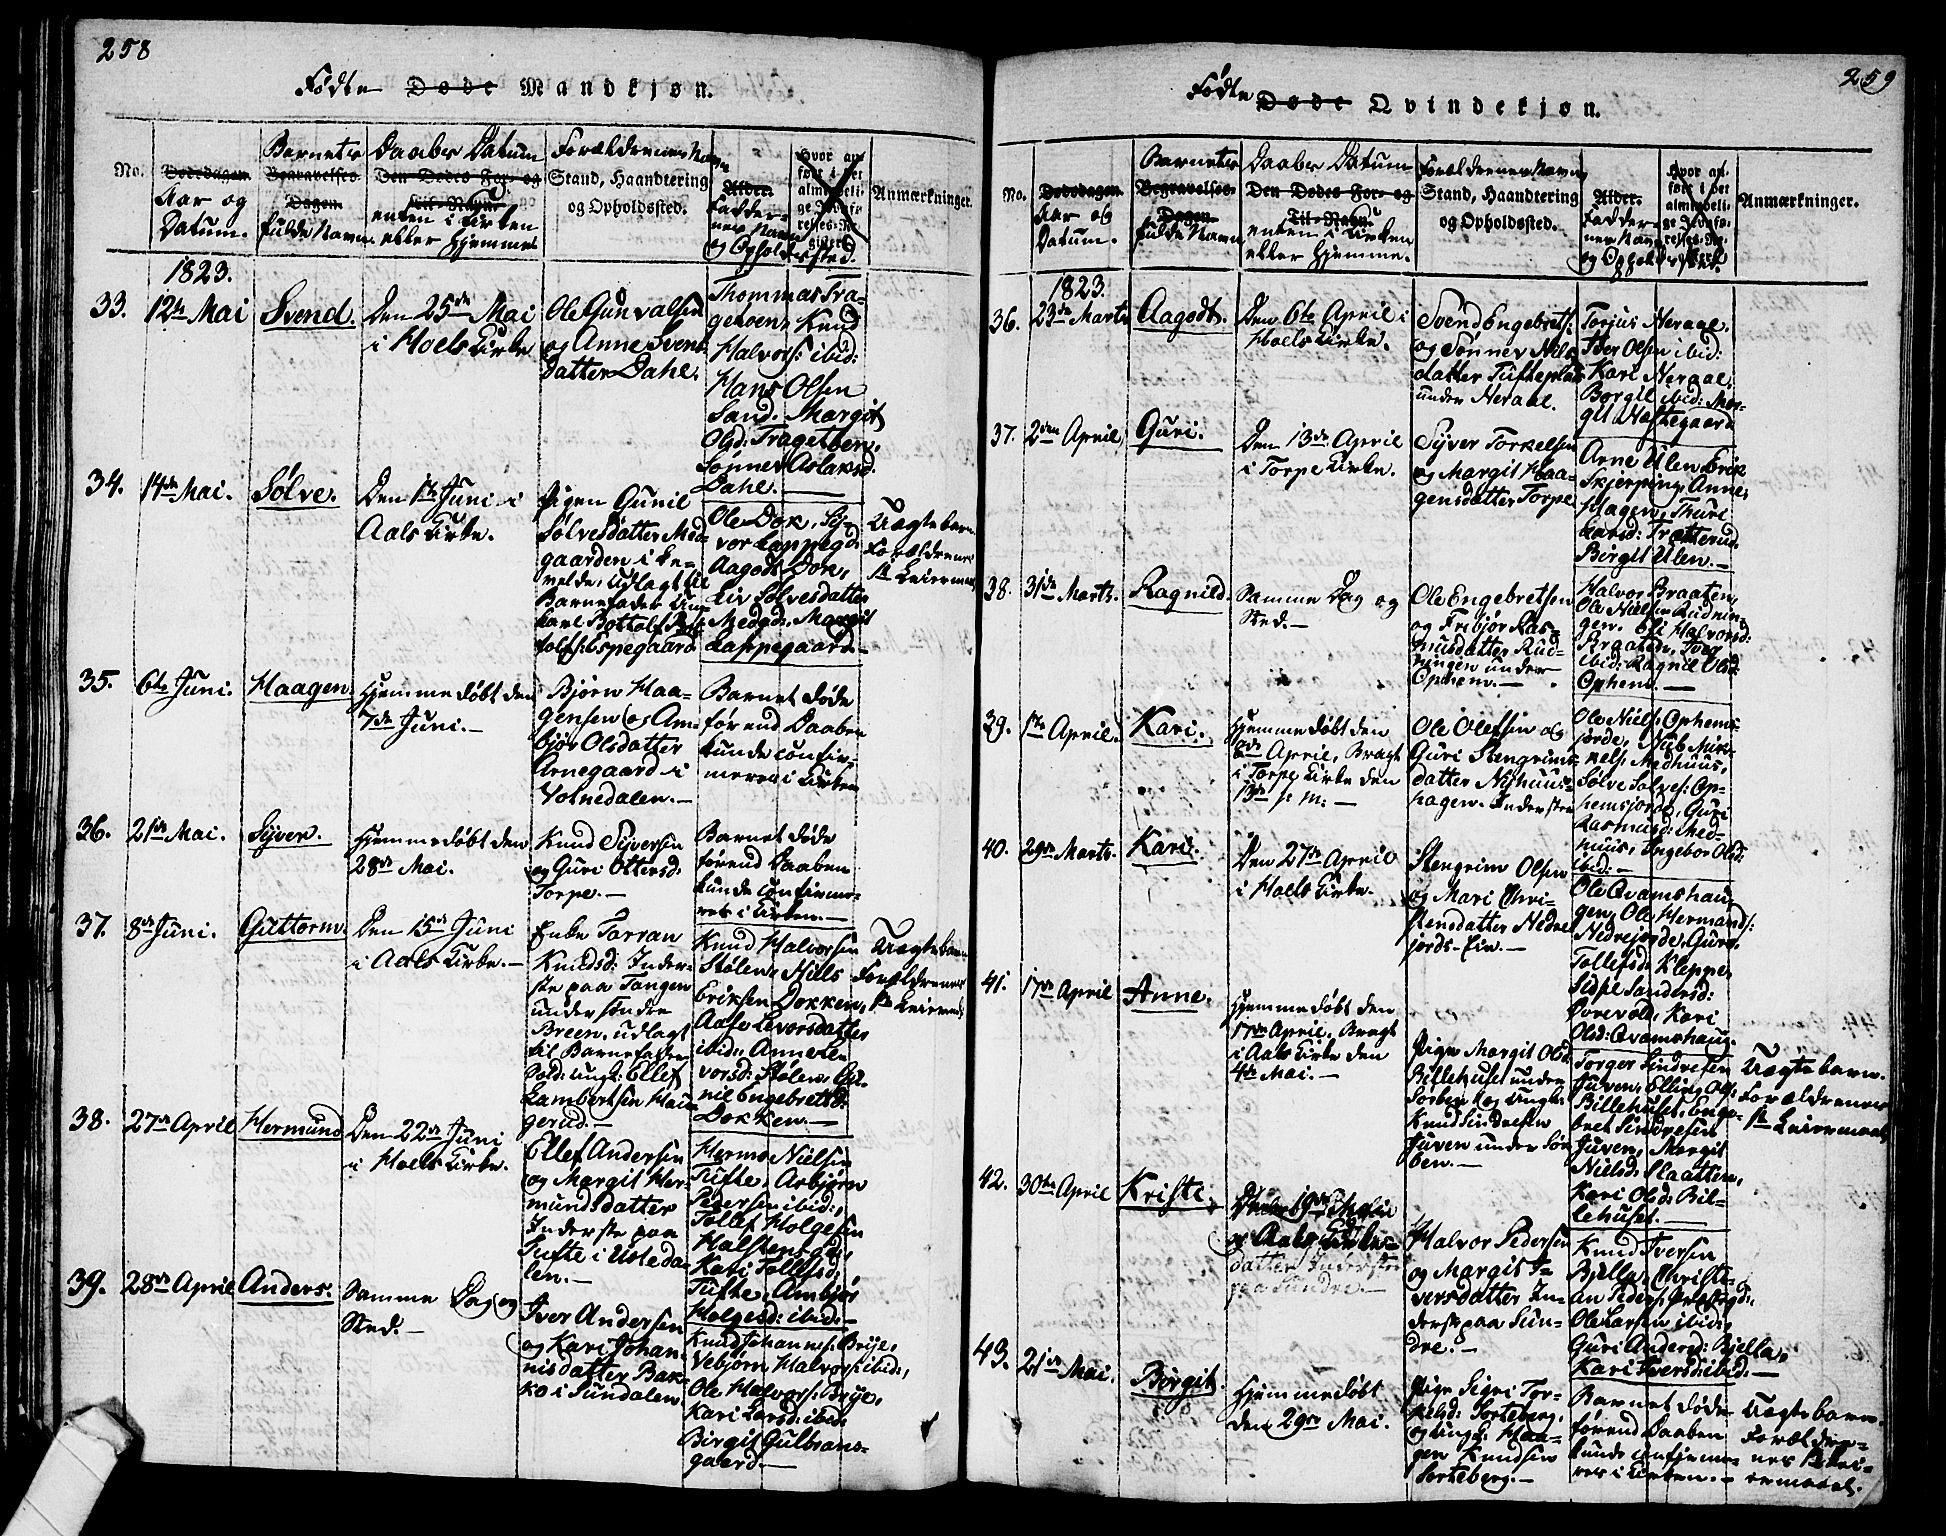 258
Fødte Døde Mandkjøn.
No.
Dødsdagen.
Aar og
Datum.
Barnets
Begravelses
Dagen.
fulde Navn.
Daabs Datum
Den Dødes For- og
Til-Navn
enten i Kirken
eller Hjemme
Forældrenes Navn
Stand, Haandtering
og Opholdssted.
Alder.
Fadder-
nes Navn
og Opholdssted.
Hvor an-
ført i det
almindeli-
ge Jevnfø-
relses-Re-
gister.
Anmærkninger.
1823.
33.
12te Mai
Svend.
Den 25de Mai
i Hoels Kirke
Ole Gunvalsen
og Anne Svens
datter Dahl.
Thommas Tra-
getøen, Knud
Halvors: ibid:
Hans Olsen
Sand. Margit
Olsd: Tragetøen,
Sønnev Aslaksd.
Dahl.
34.
14de Mai.
Sølve.
Den 1te Juni i
Aals Kirke.
Pigen Gunil
Sølvesdatter Med-
gaarden i Le-
velde, udlagt til
Barnefader Un-
karl Bottolf Bot-
tolfs: Espegaard
Ole Dok, Sy-
vor Lappegd.
Aagodt Dok,
Liv Sølvesdatter
Medgd., Margit
Lappegaard.
Uægte barn.
Forældrenes
1te Leiermaal
35.
6te Juni.
Haagen.
Hjemmedøbt den
7de Juni.
Bjørn Haa-
gensen og Am-
bjør Olsdatter
Arnegaard i
Votnedalen.
Barnet døde
førend Daaben
kunde confir-
meres i Kirken
36.
21de Mai.
Syver.
Hjemmedøbt den
28de Mai.
Knud Syversen
og Guri Ottersd:
Torpe.
Barnet døde
førend Daaben
kunde confirme-
res i Kirken.
37.
8de Juni.
Guttorm.
Den 15de Juni
i Aals Kirke.
Enke Torran
Knudsd: Inder-
ste paa Tangen
under søndre
Breen, udlagt
til Barnefader
Sold: ungk: Ellef
Lambertsen Hau-
gerud.
Knud Halvorsen
Stølen, Niels
Eriksen Dokken,
Aase Levorsdatter
ibid:, Anne Le-
vorsd: Stølen, Gu-
nil Engebretsd:
Dokken.
Uægte barn
Forældrenes
1te Leiermaal
38.
27de April
Hermund
Den 22de Juni
i Hoels Kirke.
Ellef Andersen
og Margit Her-
mundsdatter
Inderste paa
Tufte iUsteda-
len.
Hermo Nielsen
Tufte, Asbjørn
Pedersen ibid:,
Tollef Holgesen
Halstensgd.,
Kari Tollefsd:
Tufte, Ambjør
Holgesd: ibid:
39.
28de April
Anders.
Samme Dag og
Sted.
Iver Andersen
og Kari Johan-
nisdatter Bak-
ko i Sundalen.
Knud Johannes: Brye,
Vebjørn Halvors: ibid:,
Ole Halvors: Brye,
Kari Larsd: ibid:
Birgit Gulbrans-
gaard.
259
Fødte Døde Qvindekjøn.
No.
Dødsdagen.
Aar og
Datum.
Barnets
Begravelses
Dagen.
fulde Navn
Daabs Datum
Den Dødes For- og
Til-Navn
enten i Kirken
eller Hjemme.
Forældrenes Navn
Stand, Haandtering
og Opholdssted.
Alder.
Fadder-
nes Navn
og Opholdssted.
Hvor an-
ført i det
almindeli-
ge Jevnfø-
relses-Re-
gister.
Anmærkninger.
1823.
36.
23de Marts
Aagodt.
Den 6te April i
Hoels Kirke.
Svend Engebrets:
og Sønnev Niels
datter Tufteplads
under Neraal.
Torjus Neraal,
Iver Olsen ibid:
Kari Neraal,
Borgil ibid: Mar-
git Nastegaard
37.
2den April
Guri.
Den 13de April
i Torpe Kirke.
Syver Torkelsen
og Margit Haa-
gensdatter Torpe
Arne Ulen, Erik
Skjerping, Anne
Hagen, Thuri
Larsd: Trætterud,
Birgit Ulen.
38.
31de Marts.
Ragnild.
Samme Dag og
Sted.
Ole Engebretsen
og Fribjør Ras-
musdatter Rud-
ningen under
Ophem.
Halvor Braaten,
Ole Nielsen Rudnin-
gen. Eli Halvorsd:
Braaten, Iver
ibid: Ragnil Olsd:
Ophem.
39.
1te April.
Kari.
Hjemmedøbt den
2de April, Bragt
i Torpe Kirke den
13de s: M:
Ole Olefsen og
Guri Stengrims-
datter Nyhuus-
hagen. Inderster
Ole Niels: Ophems-
jorde, Niels Mik-
kels: Medhuus,
Sølve Sølves: Op-
hemsjorde, Guri
Rasmusd: Med-
huus, Ingebor Olsd:
ibid:
40.
29de Marts.
Kari.
Den 27de April
i Hoels Kirke.
Stengrim Olsen
og Mari Chri-
stensdatter Nedre
jords-Eie.
Ole Qvamshau-
gen, Ole Hermands:
Nedrejorde, Guro
Tollefsd: Kleppe,
Sidse Sandersd:
Øvrevold, Kari
Olsd: Qvamshaug.
41.
17de April
Anne.
Hjemmedøbt den
17de April, Bragt
i Aals Kirke den
4de Mai.
Pige Margit Olsd:
Billehuset under
Sorben og Ungk:
Knud Sindresen
Juven under Sør-
ben.
Torger Sindresen
Juven, Elling Ols:
Billehuset, Enge-
bret Sindresen
Juven, Margit
Nielsd: Plaatten,
Kari Olsd: Bil-
lehuset.
Uægte barn.
Forældrenes
1te Leiermaal
42.
30te April
Kristi.
i Aals Kirke
datter Inderster
paa Sundre.
Halvor Pedersen
og Margit I-
versdatter In-
derste paa Sun-
dre.
Knud Iversen
Bjella, Christi-
an Peders: Præstegd:,
Ole Larsen ibid:,
Guri Andersd: Bjella,
Kari Iversd: ibid:
43.
21de Mai.
Børgit.
Hjemmedøbt
den 29de Mai.
Pige Sigri Tor-
kelsd: Sorteberg,
og Ungk: Haa-
gen Knudsen
Sorteberg.
Barnet døde
førend Daaben
kunde confirme-
res i Kirken.
Uægte barn.
Forældre-
nes 1te Lei-
ermaal.